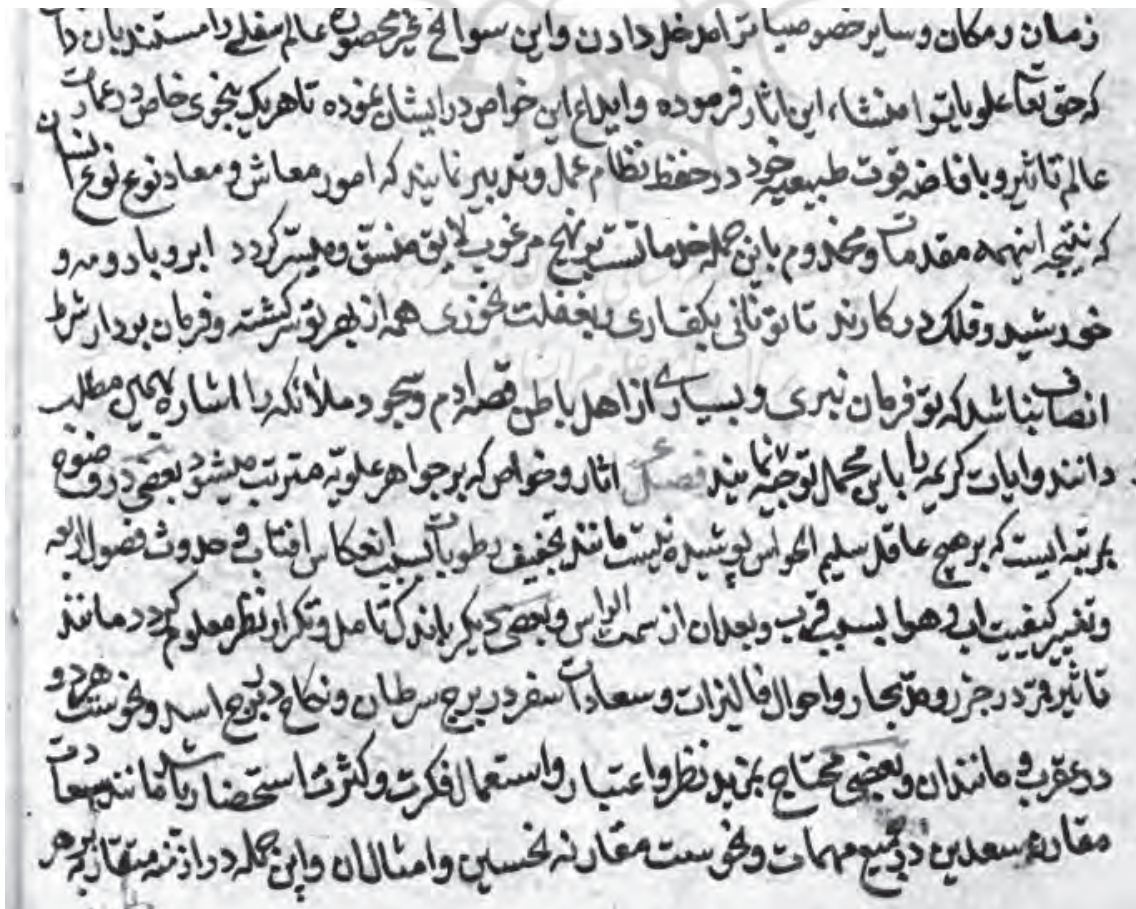 زمان و مکان و سایر خصوصیات را مدخل دادن و این سوانح غیر محصور عالم سفلی را مستند بان دا
که حق تعا علویات را منشاء این اثار فرموده و ایداع این خواص در ایشان نموده تا هر یک بنحوی خاص در عمارت
عالم تاثیر و بافاضه قوت طبیعیه خود در حفظ نظام عمل و تدبیر نمایند که امور معاش و معاد نوع نوع انسان
که نتیجه اینهمه مقدمات و مخدوم باین جمله خدماتست بر نهج مرغوب لایق منسق و میسر کردد ابر و باد و مه و
خورشید و فلک در کارند تا تو نانی بکف اری و بغفلت نخوری همه از بهر تو سرکشته و فرمان بردار شرط
انصاف نباشد که تو فرمان نبری و بسیاری از اهل باطن قصه ادم و سجود ملائکه را اشاره بهمین مطلب
دانند و ایات کریمه را باین محمل توجیه نمایند فصل اثار و خواص که بر جواهر علویه مترتب میشود بعضی در وضوح
بمرتبه ایست که بر هیچ عاقل سلیم الحواس پوشیده نیست مانند تجفیف رطوبات بسبب انعکاس افتاب و حدوث فصول اربعه
و تغییر کیفیت اب و هوا بسبب قرب و بعد ان از سمت الراس و بعضی دیکر باندک تامل و تکرار نظر معلوم کردد مانند
تاثیر قمر در جزر و مد بحار و احوال فالیزات و سعادات سفر در برج سرطان و نکاح در برج اسد و نحوست هردو
در عقرب و مانند ان و بعضی محتاج بمزید نظر و اعتبار و استعمال فکرت و کثرت استحضار باشد مانند سعادت
مقارنه سعدین در جمیع مهمات و نحوست مقارنه نحسین و امثال ان و این جمله در ازمنه متقاربه بر هر